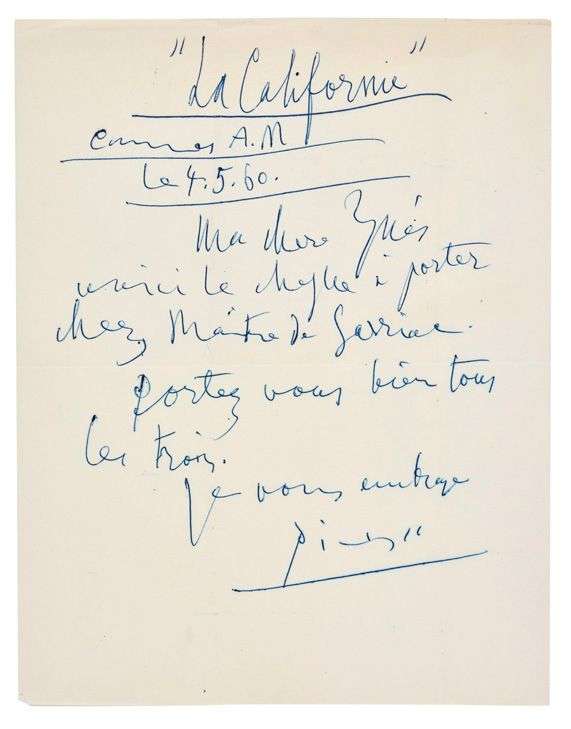 "La Californie"
Cannes A.M
le 4.5.60.
Ma chere Ynés
voici le cheque à porter
chez Maître de Sarriac.
portez vous bien tous
les trois.
Je vous embrasse
Picasso